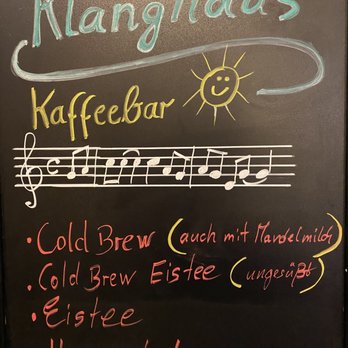 Klanghaus
Kaffeebar
• Cold Brew (auch mit Mandelmilch)
• Cold Brew Eistee (ungesüßt)
• Eistee